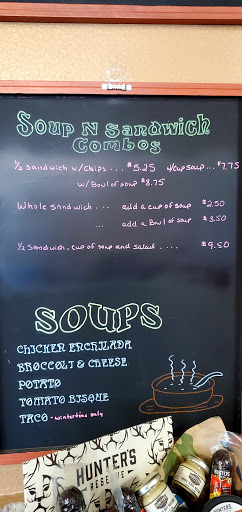 Soup N Sandwich
Combos
½ sandwich w/chips .... $5.25 w/cup soup... $7.75
w/Bowl of soup $8.75
Whole Sandwich ... add a cup of soup $2.50
... add a Bowl of soup $3.50
½ Sandwich, cup of soup and salad .... $9.50
SOUPS
CHICKEN ENCHILADA
BROCCOLI & CHEESE
POTATO
TOMATO BISQUE
TACO - wintertime only
HUNTER'S
RESERVE